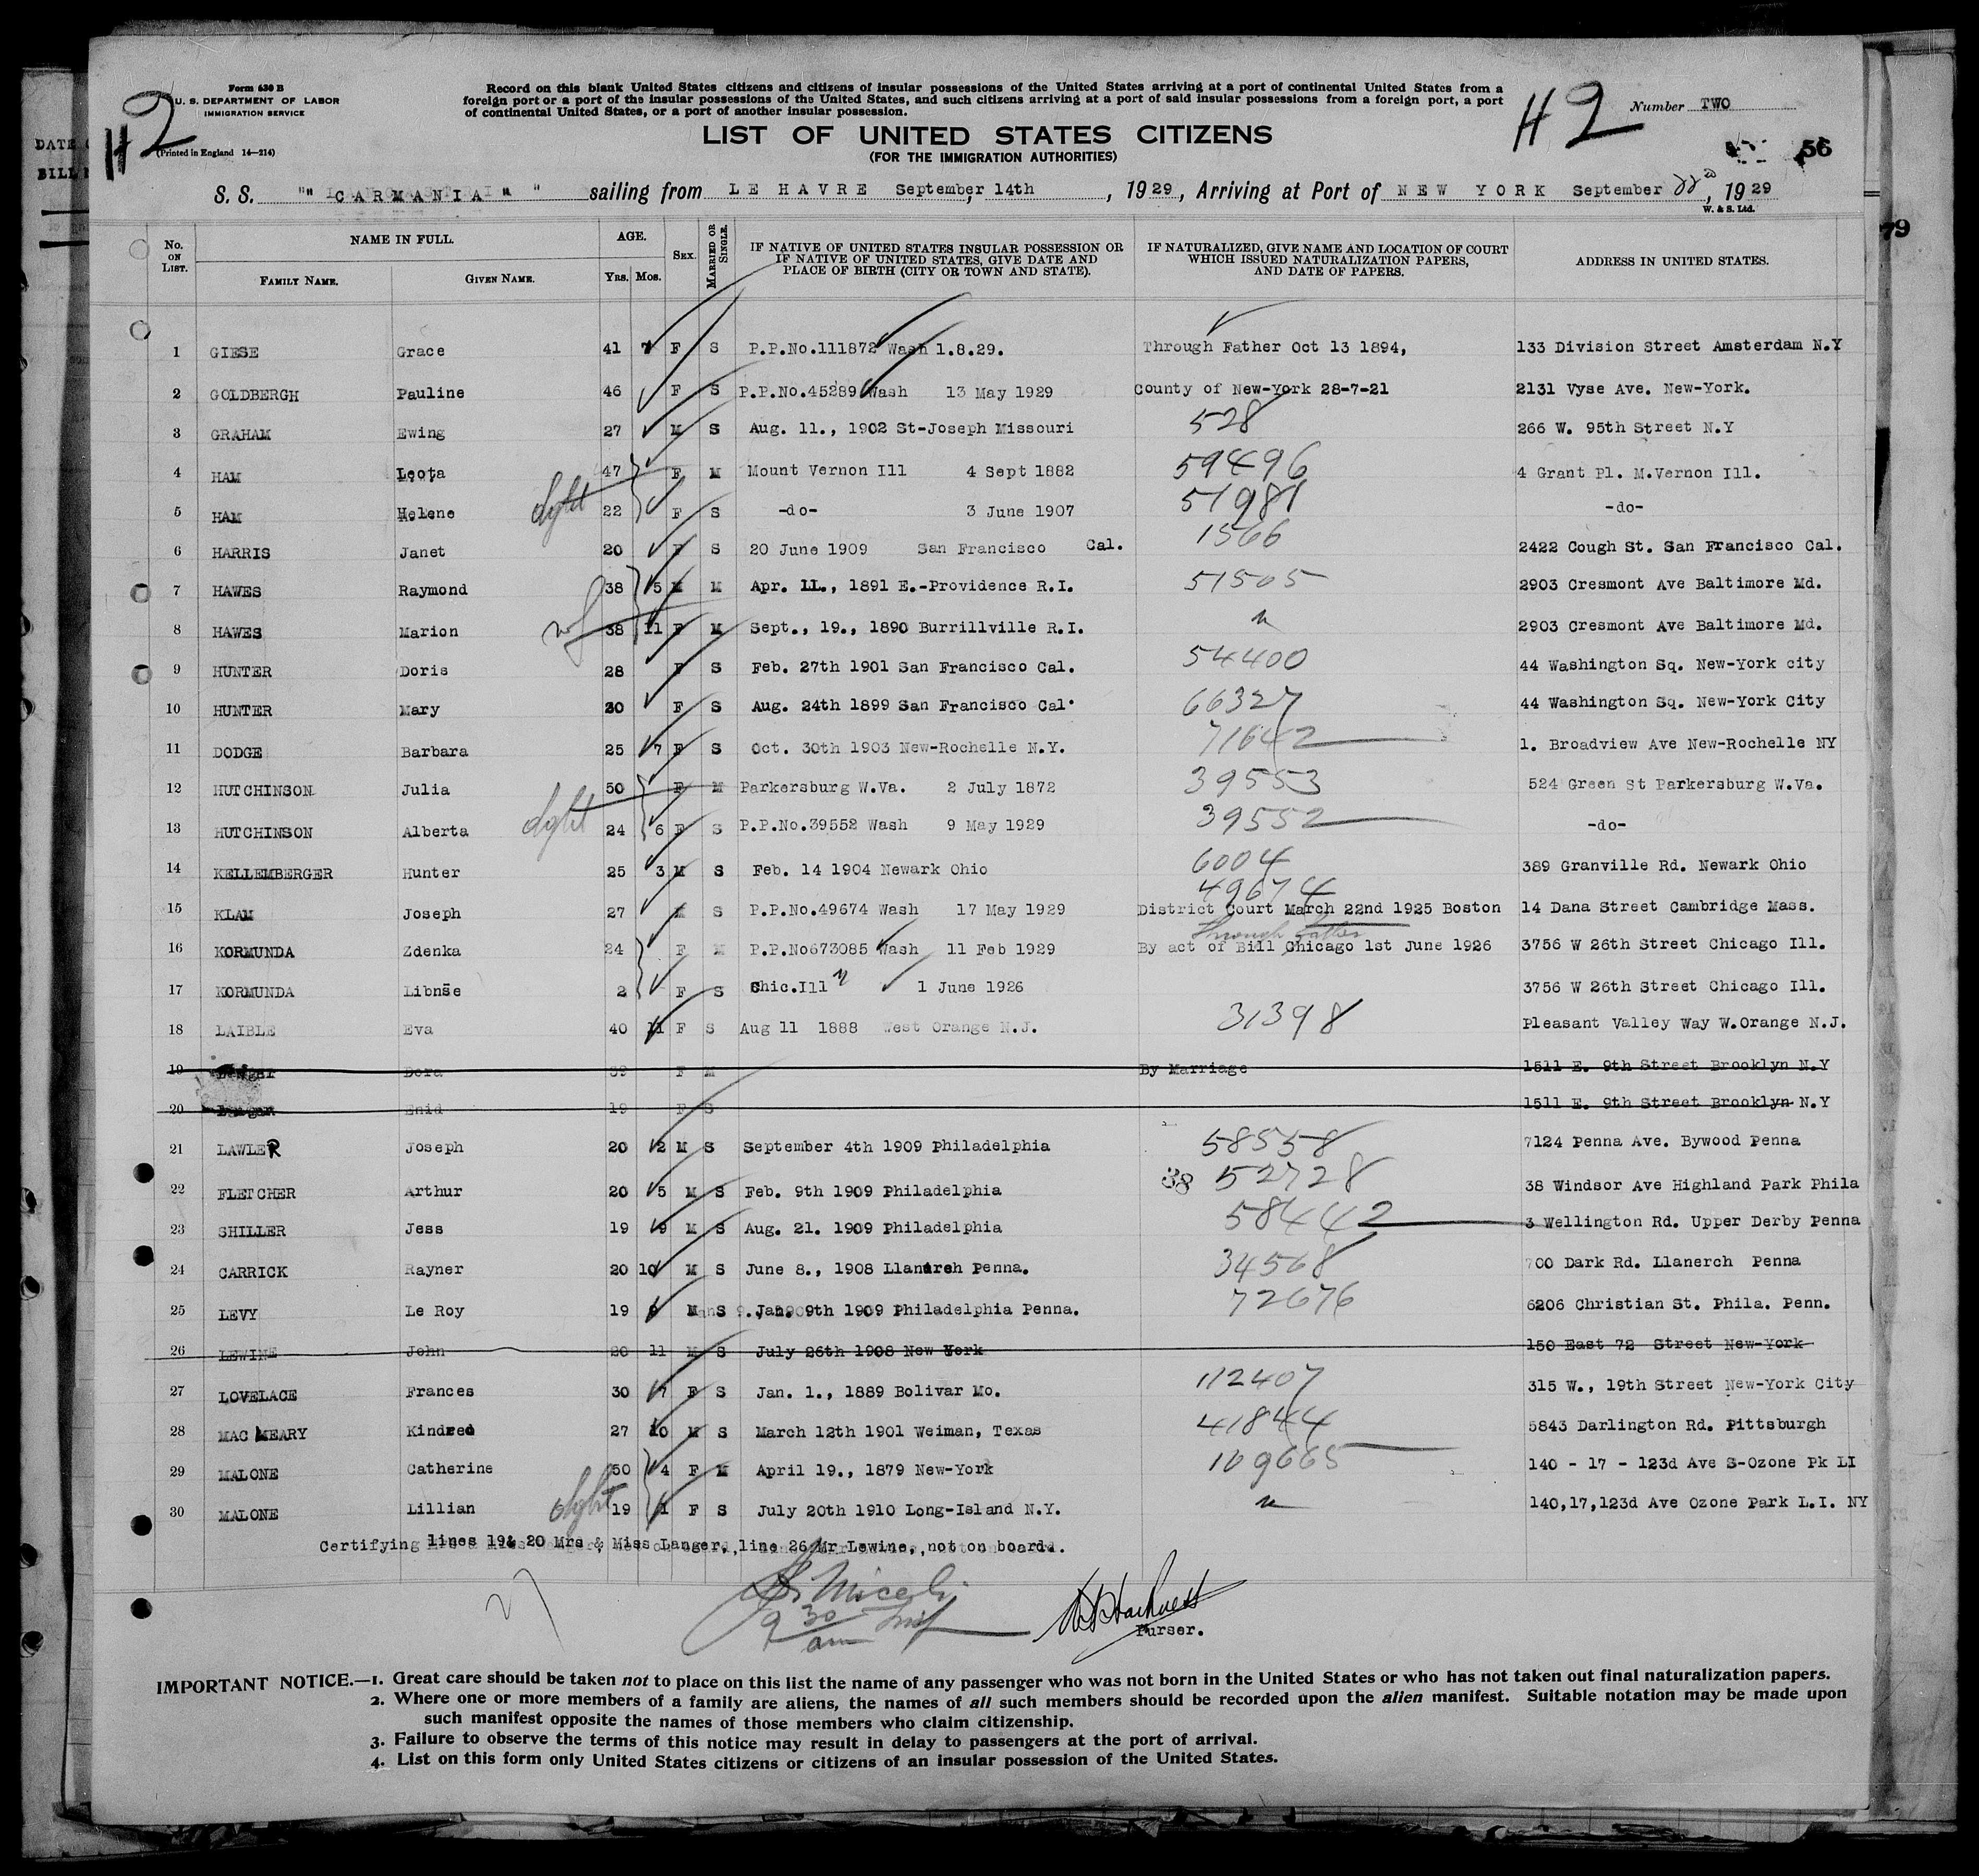 Form 630 B
U. S. DEPARTMENT OF LABOR
IMMIGRATION SERVICE
(Printed in England 14—214)
H 2
Record on this blank United States citizens and citizens of insular possessions of the United States arriving at a port of continental United States from a
foreign port or a port of the insular possessions of the United States, and such citizens arriving at a port of said insular possessions from a foreign port, a port
of continental United States, or a port of another insular possession.
H 2
Number TWO
LIST OF UNITED STATES CITIZENS
(FOR THE IMMIGRATION AUTHORITIES)
56
DATE
BILL
79
S. S. "CARMANIA" sailing from LE HAVRE September, 14th, 1929, Arriving at Port of NEW YORK September 22d, 1929
W. & S. Ltd.
No. ON LIST. NAME IN FULL. FAMILY NAME. GIVEN NAME. AGE. YRS. MOS. SEX. MARRIED OR SINGLE. IF NATIVE OF UNITED STATES INSULAR POSSESSION OR IF NATIVE OF UNITED STATES, GIVE DATE AND PLACE OF BIRTH (CITY OR TOWN AND STATE). IF NATURALIZED, GIVE NAME AND LOCATION OF COURT WHICH ISSUED NATURALIZATION PAPERS, AND DATE OF PAPERS. ADDRESS IN UNITED STATES.
1 GIESE Grace 41 7 F S P.P.No.111872 Wash 1.8.29. Through Father Oct 13 1894, 133 Division Street Amsterdam N.Y
2 GOLDBERGH Pauline 46 F S P.P.No.45289 Wash 13 May 1929 County of New-York 28-7-21 2131 Vyse Ave. New-York.
3 GRAHAM Ewing 27 M S Aug. 11., 1902 St-Joseph Missouri 528 266 W. 95th Street N.Y
4 HAM Leota 47 F M Mount Vernon Ill 4 Sept 1882 59496 4 Grant Pl. M.Vernon Ill.
5 HAM Helene dght 22 F S -do- 3 June 1907 51981 -do-
6 HARRIS Janet 20 F S 20 June 1909 San Francisco Cal. 1566 2422 Cough St. San Francisco Cal.
7 HAWES Raymond 38 5 M M Apr. 11., 1891 E.-Providence R.I. 51505 2903 Cresmont Ave Baltimore Md.
8 HAWES Marion wf 38 11 F M Sept., 19., 1890 Burrillville R.I. " 2903 Cresmont Ave Baltimore Md.
9 HUNTER Doris 28 F S Feb. 27th 1901 San Francisco Cal. 54400 44 Washington Sq. New-York city
10 HUNTER Mary 30 F S Aug. 24th 1899 San Francisco Cal. 66327 44 Washington Sq. New-York City
11 DODGE Barbara 25 7 F S Oct. 30th 1903 New-Rochelle N.Y. 71642 1. Broadview Ave New-Rochelle NY
12 HUTCHINSON Julia 50 F M Parkersburg W.Va. 2 July 1872 39553 524 Green St Parkersburg W.Va.
13 HUTCHINSON Alberta dght 24 6 F S P.P.No.39552 Wash 9 May 1929 39552 -do-
14 KELLEMBERGER Hunter 25 3 M S Feb. 14 1904 Newark Ohio 6004 389 Granville Rd. Newark Ohio
49674
15 KLAM Joseph 27 M S P.P.No.49674 Wash 17 May 1929 District Court March 22nd 1925 Boston 14 Dana Street Cambridge Mass.
through father
16 KORMUNDA Zdenka 24 F M P.P.No673085 Wash 11 Feb 1929 By act of Bill Chicago 1st June 1926 3756 W 26th Street Chicago Ill.
17 KORMUNDA Libnse 2 F S Chic.Ill 1 June 1926 3756 W 26th Street Chicago Ill.
18 LAIBLE Eva 40 11 F S Aug 11 1888 West Orange N.J. 31398 Pleasant Valley Way W.Orange N.J.
19 Langer Dora 39 F M By Marriage 1511 E. 9th Street Brooklyn N.Y
20 Langer Enid 19 F S 1511 E. 9th Street Brooklyn N.Y
21 LAWLER Joseph 20 2 M S September 4th 1909 Philadelphia 58558 7124 Penna Ave. Bywood Penna
22 FLETCHER Arthur 20 5 M S Feb. 9th 1909 Philadelphia 38 52728 38 Windsor Ave Highland Park Phila
23 SHILLER Jess 19 9 M S Aug. 21. 1909 Philadelphia 58442 3 Wellington Rd. Upper Derby Penna
24 CARRICK Rayner 20 10 M S June 8., 1908 Llanerch Penna. 34568 700 Dark Rd. Llanerch Penna
25 LEVY Le Roy 19 9 M S Jan. 9th 1909 Philadelphia Penna. 72676 6206 Christian St. Phila. Penn.
26 LEWINE John 20 11 M S July 26th 1908 New York 150 East 72 Street New-York
27 LOVELACE Frances 30 7 F S Jan. 1., 1889 Bolivar Mo. 112407 315 W., 19th Street New-York City
28 MAC MEARY Kindred 27 10 M S March 12th 1901 Weiman, Texas 41844 5843 Darlington Rd. Pittsburgh
29 MALONE Catherine 50 4 F M April 19., 1879 New-York 109665 140 - 17 - 123d Ave S-Ozone Pk LI
30 MALONE Lillian dght 19 1 F S July 20th 1910 Long-Island N.Y. " 140,17,123d Ave Ozone Park L.I. NY
Certifying lines 19& 20 Mrs & Miss Langer, line 26 Mr Lewine, not on board.
27
9 30 am
Purser.
IMPORTANT NOTICE.—1. Great care should be taken not to place on this list the name of any passenger who was not born in the United States or who has not taken out final naturalization papers.
2. Where one or more members of a family are aliens, the names of all such members should be recorded upon the alien manifest. Suitable notation may be made upon
such manifest opposite the names of those members who claim citizenship.
3. Failure to observe the terms of this notice may result in delay to passengers at the port of arrival.
4. List on this form only United States citizens or citizens of an insular possession of the United States.